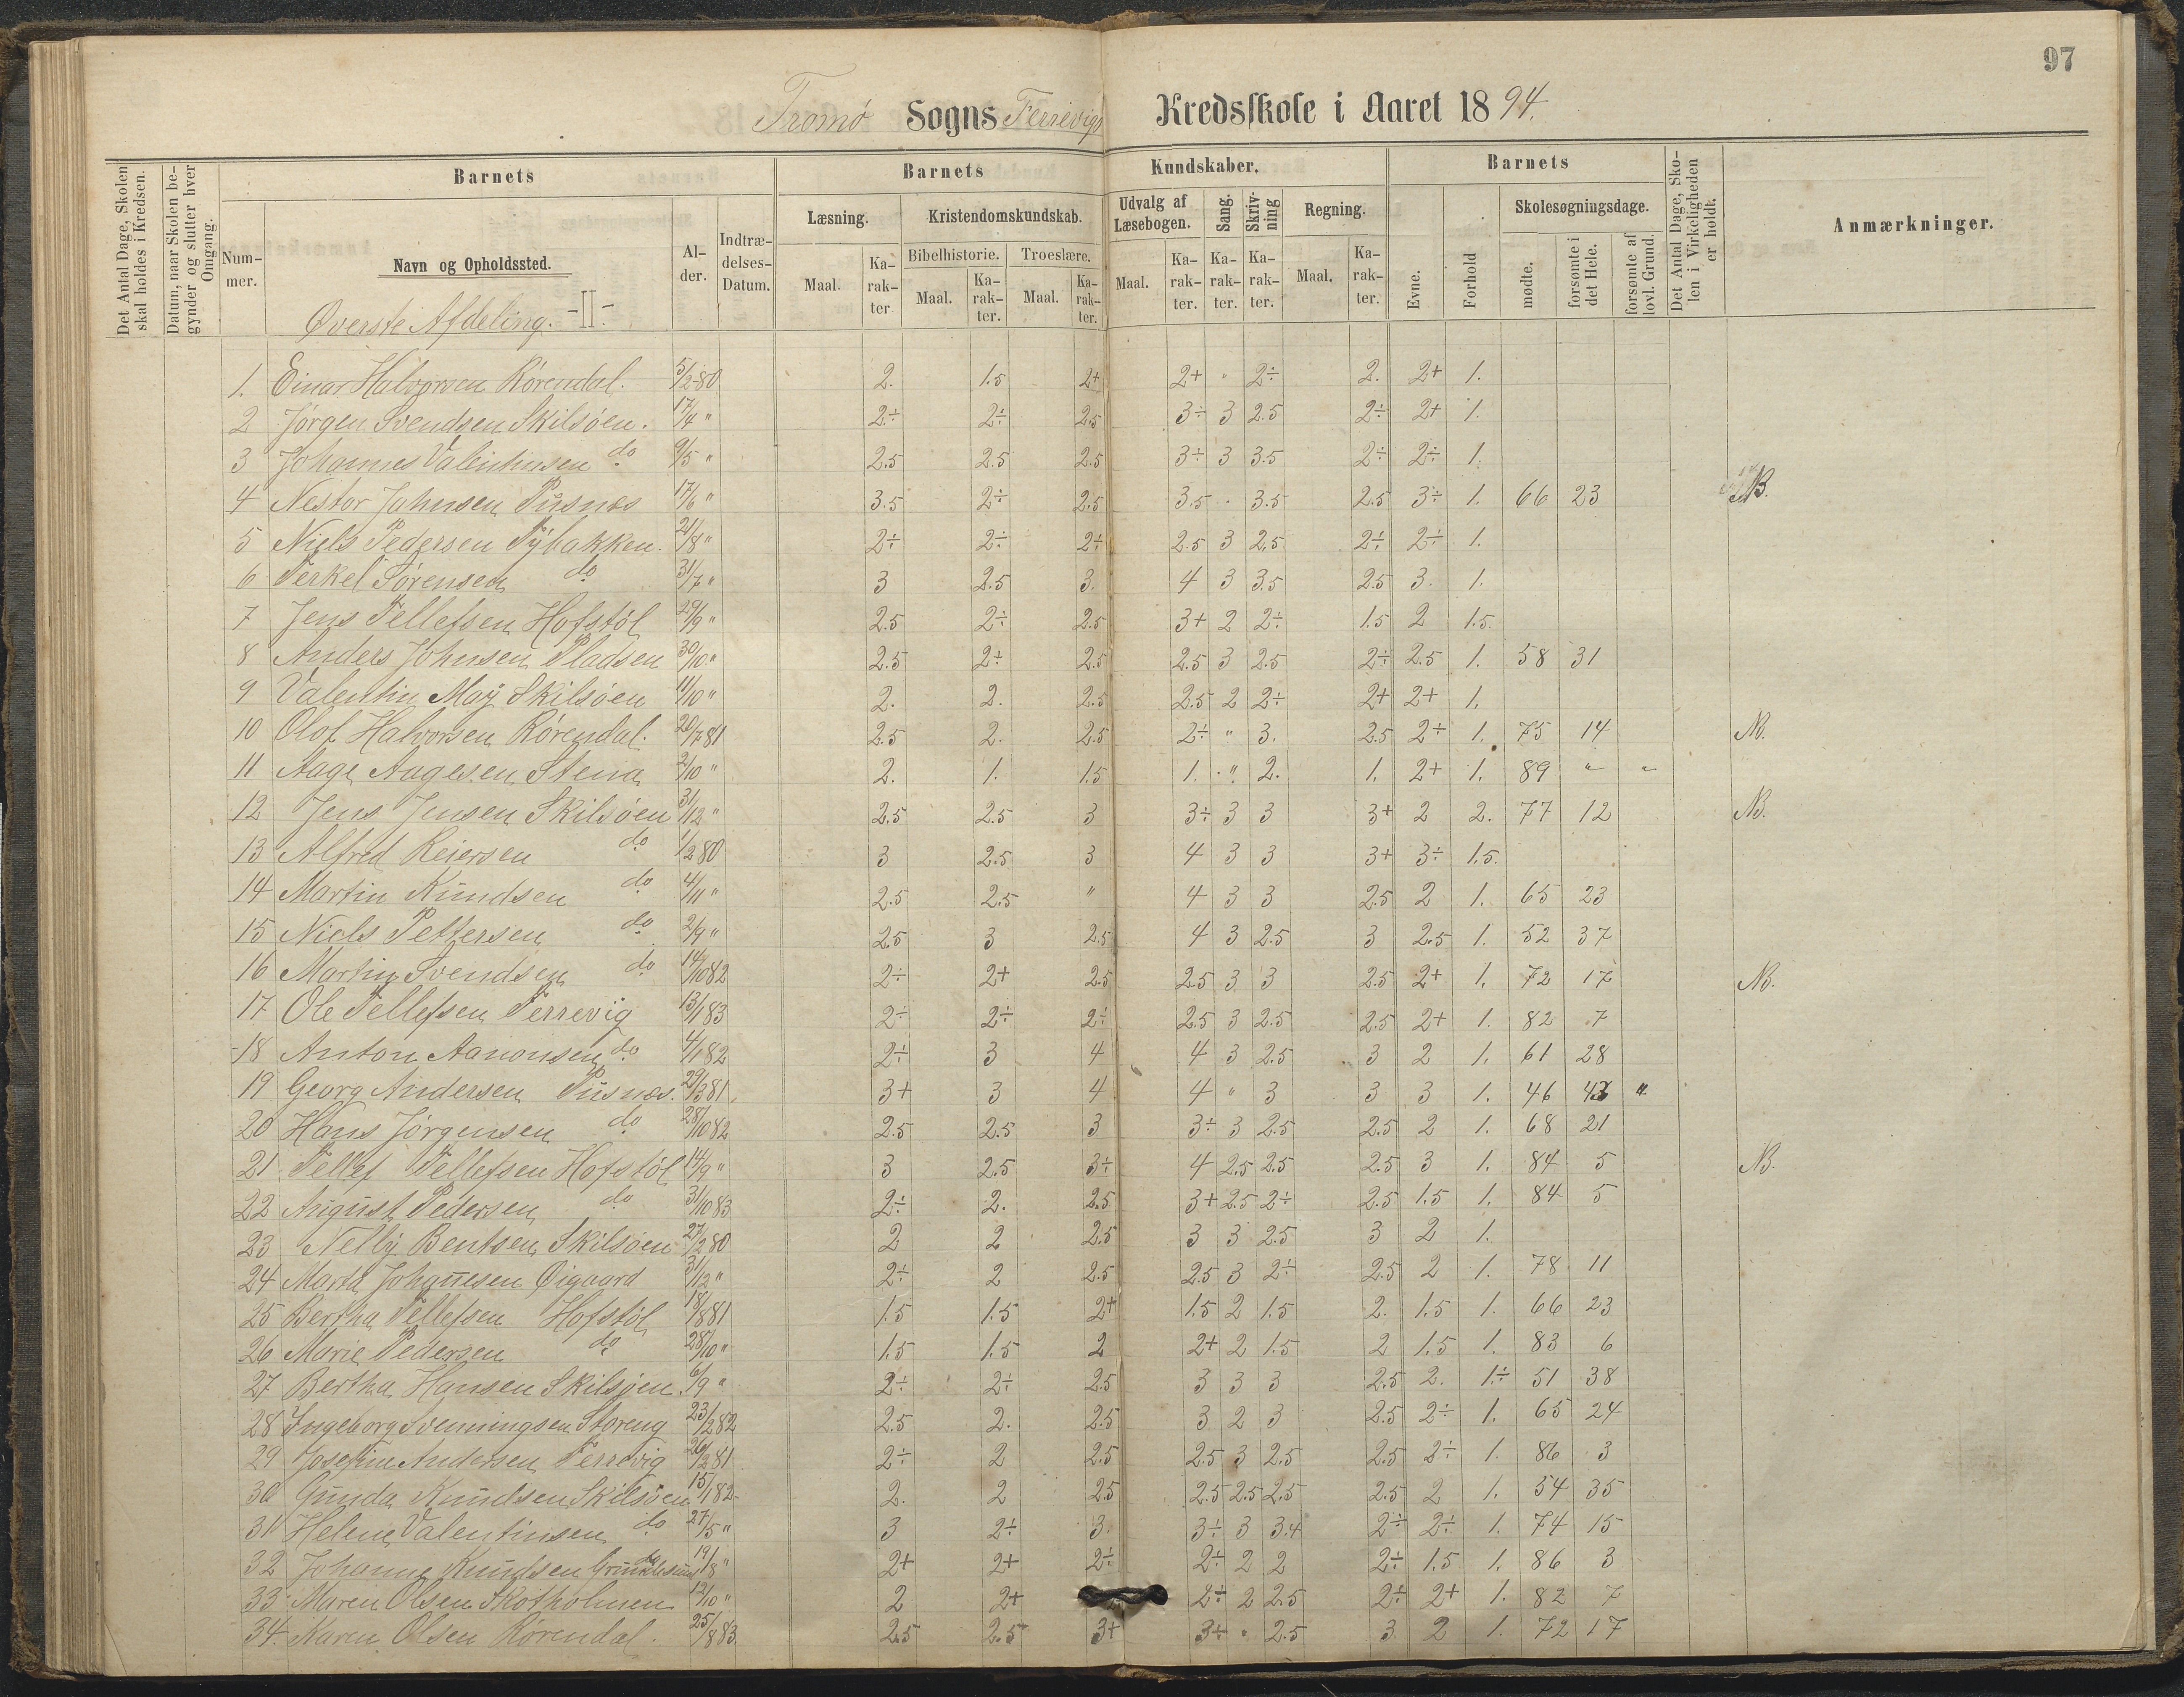 97
Tromø Sogns Færrevigs Kredsskole i Aaret 1894.
Det Antal Dage, Skolen skal holdes i Kredsen.
Datum, naar Skolen begynder og slutter hver Omgang.
Barnets
Nummer.
Navn og Opholdssted.
Alder.
Indtrædelses-Datum.
Barnets Kundskaber.
Læsning.
Maal. Karakter
Kristendomskundskab.
Bibelhistorie. Troeslære.
Maal. Karakter. Maal. Karakter.
Udvalg af Læsebogen.
Maal. Karakter.
Sang. Karakter.
Skrivning Karakter.
Regning.
Maal. Karakter.
Barnets
Evne.
Forhold
Skolesøgningsdage.
mødte.
forsømte i det Hele.
forsømte af lovl. Grund.
Det Antal Dage, Skolen i Virkeligheden er holdt.
Anmærkninger.
Øverste Afdeling. -II-
1. Einar Halvorsen Rørendal. 5/2 80 2. 1.5 2+ 2+ " 2÷ 2. 2+ 1.
2 Jørgen Svendsen Skilsøen. 17/4 " 2÷ 2÷ 2.5 3÷ 3 2.5 2÷ 2+ 1.
3 Johannes Valentinsen do 9/5 " 2.5 2.5 2.5 3÷ 3 3.5 2÷ 2÷ 1.
4 Nestor Johnsen Pusnæs 17/6 " 3.5 2÷ 2.5 3.5 . 3.5 2.5 3÷ 1. 66 23 NB.
5 Niels Pedersen Tybakken. 21/8 " 2÷ 2÷ 2÷ 2.5 3 2.5 2÷ 2÷ 1.
6 Terkel Sørensen do 31/7 " 3 2.5 3. 4 3 3.5 2.5 3. 1.
7 Jens Tellefsen Hofstøl 29/9 " 2.5 2÷ 2.5 3+ 2 2÷ 1.5 2 1.5.
8 Anders Johnsen Pladsen 30/10 " 2.5 2÷ 2.5 2.5 3 2.5 2÷ 2.5 1. 58 31
9 Valentin May Skilsøen 11/10 " 2. 2. 2.5 2.5 2 2÷ 2+ 2+ 1.
10 Olof Halvorsen Rørendal. 20/7 81 2.5 2. 2.5 2÷ " 3. 2.5 2÷ 1. 75 14 NB.
11 Aage Aagesen Stena 2/10 " 2. 1. 1.5 1. " 2. 1. 2+ 1. 89 " "
12 Jens Jensen Skilsøen 31/12 " 2.5 2.5 3 3÷ 3 3 3+ 2 2. 77 12 NB.
13 Alfred Reiersen do 1/2 80 3 2.5 3 4 3 3 3+ 3÷ 1.5.
14 Martin Knudsen do 4/11 " 2.5 2.5 " 4 3 3 2.5 2 1. 65 23
15 Niels Pettersen do 2/9 " 2.5 3 2.5 4 3 2.5 3 2.5 1. 52 37
16 Martin Svendsen do 14/10 82 2÷ 2+ 2.5 2.5 3 3 2.5 2+ 1. 72 17 NB.
17 Ole Tellefsen Færrevig 13/1 83 2÷ 2÷ 2÷ 2.5 3 2.5 2.5 2+ 1. 82 7
18 Anton Aanonsen do 4/1 82 2÷ 3 4 4 3 2.5 3 2 1. 61 28
19 Georg Andersen Pusnæs. 29/3 81 3+ 3 4 4 " 3 3 3 1. 46 43 "
20 Hans Jørgensen do 28/10 82 2.5 2.5 3 3÷ 3 2.5 2.5 2 1. 68 21
21 Tellef Tellefsen Hofstøl 14/9 " 3 2.5 3÷ 4 2.5 2.5 2.5 3 1. 84 5 NB.
22 August Pedersen do 31/10 83 2÷ 2. 2.5 3+ 2.5 2÷ 2.5 1.5 1. 84 5
23 Nelly Bentsen Skilsøen 27/2 80 2 2 2.5 3 3 2.5 3 2 1.
24 Marta Johannesen Øigaard 31/12 " 2÷ 2 2.5 2.5 3 2÷ 2.5 2 1. 78 11
25 Bertha Tellefsen Hofstøl 18/8 81 1.5 1.5 2+ 1.5 2 1.5 2. 1.5 1. 66 23
26 Marie Pedersen do 28/10 " 1.5 1.5 2 2+ 2 1.5 2 1.5 1. 83 6
27 Bertha Hansen Skilsøen. 6/9 " 2÷ 2÷ 2.5 3 3 3 2.5 2. 1÷ 51 38
28 Ingeborg Svenningsen Storeng 23/2 82 2.5 2. 2.5 3 2 3 2.5 2÷ 1. 65 24
29 Josefine Andersen Færrevig 26/2 81 2÷ 2 2.5 2.5 3 2.5 2.5 2÷ 1. 86 3
30 Gunda Knudsen Skilsøen 15/1 82 2. 2 2.5 2.5 2.5 2.5 2.5 2 1. 54 35
31 Helene Valentinsen do 27/5 " 3 2÷ 3. 3÷ 3 3.4 2÷ 2÷ 1. 74 15
32 Johanne Knudsen do 19/8 " 2+ 2+ 2÷ 2÷ 2 2 2÷ 1.5 1. 86 3
33 Maren Olsen Skotholmen 12/10 " 2 2+ 2÷ 2 2.5 2÷ 2+ 1. 82 7
34. Karen Olsen Rørendal. 25/8 83. 2.5 2.5 3+ 3÷ " 2.5 3 2 1. 72 17